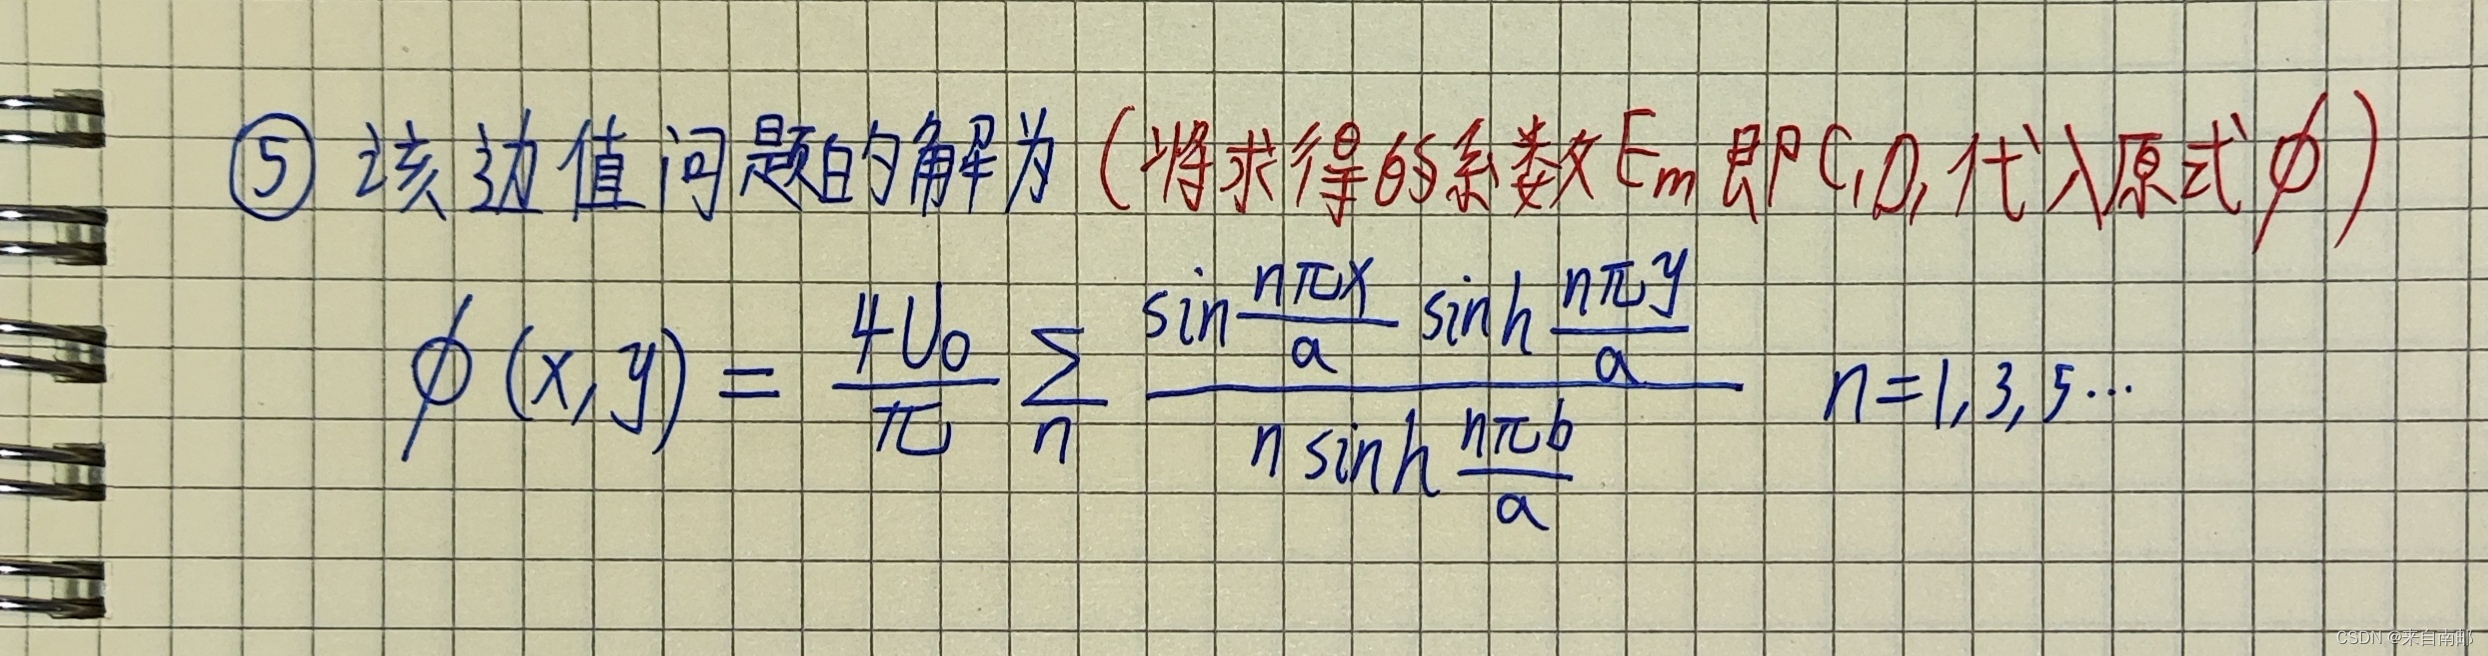 ⑤ 该边值问题的解为（将求得的系数 Em 即 C,D, 代入原式 ϕ）
ϕ(x,y) = \frac{4U_0}{π} \sum_n \frac{\sin\frac{nπx}{a} \sinh\frac{nπy}{a}}{n \sinh\frac{nπb}{a}} n=1,3,5…
CSDN @来自南邮